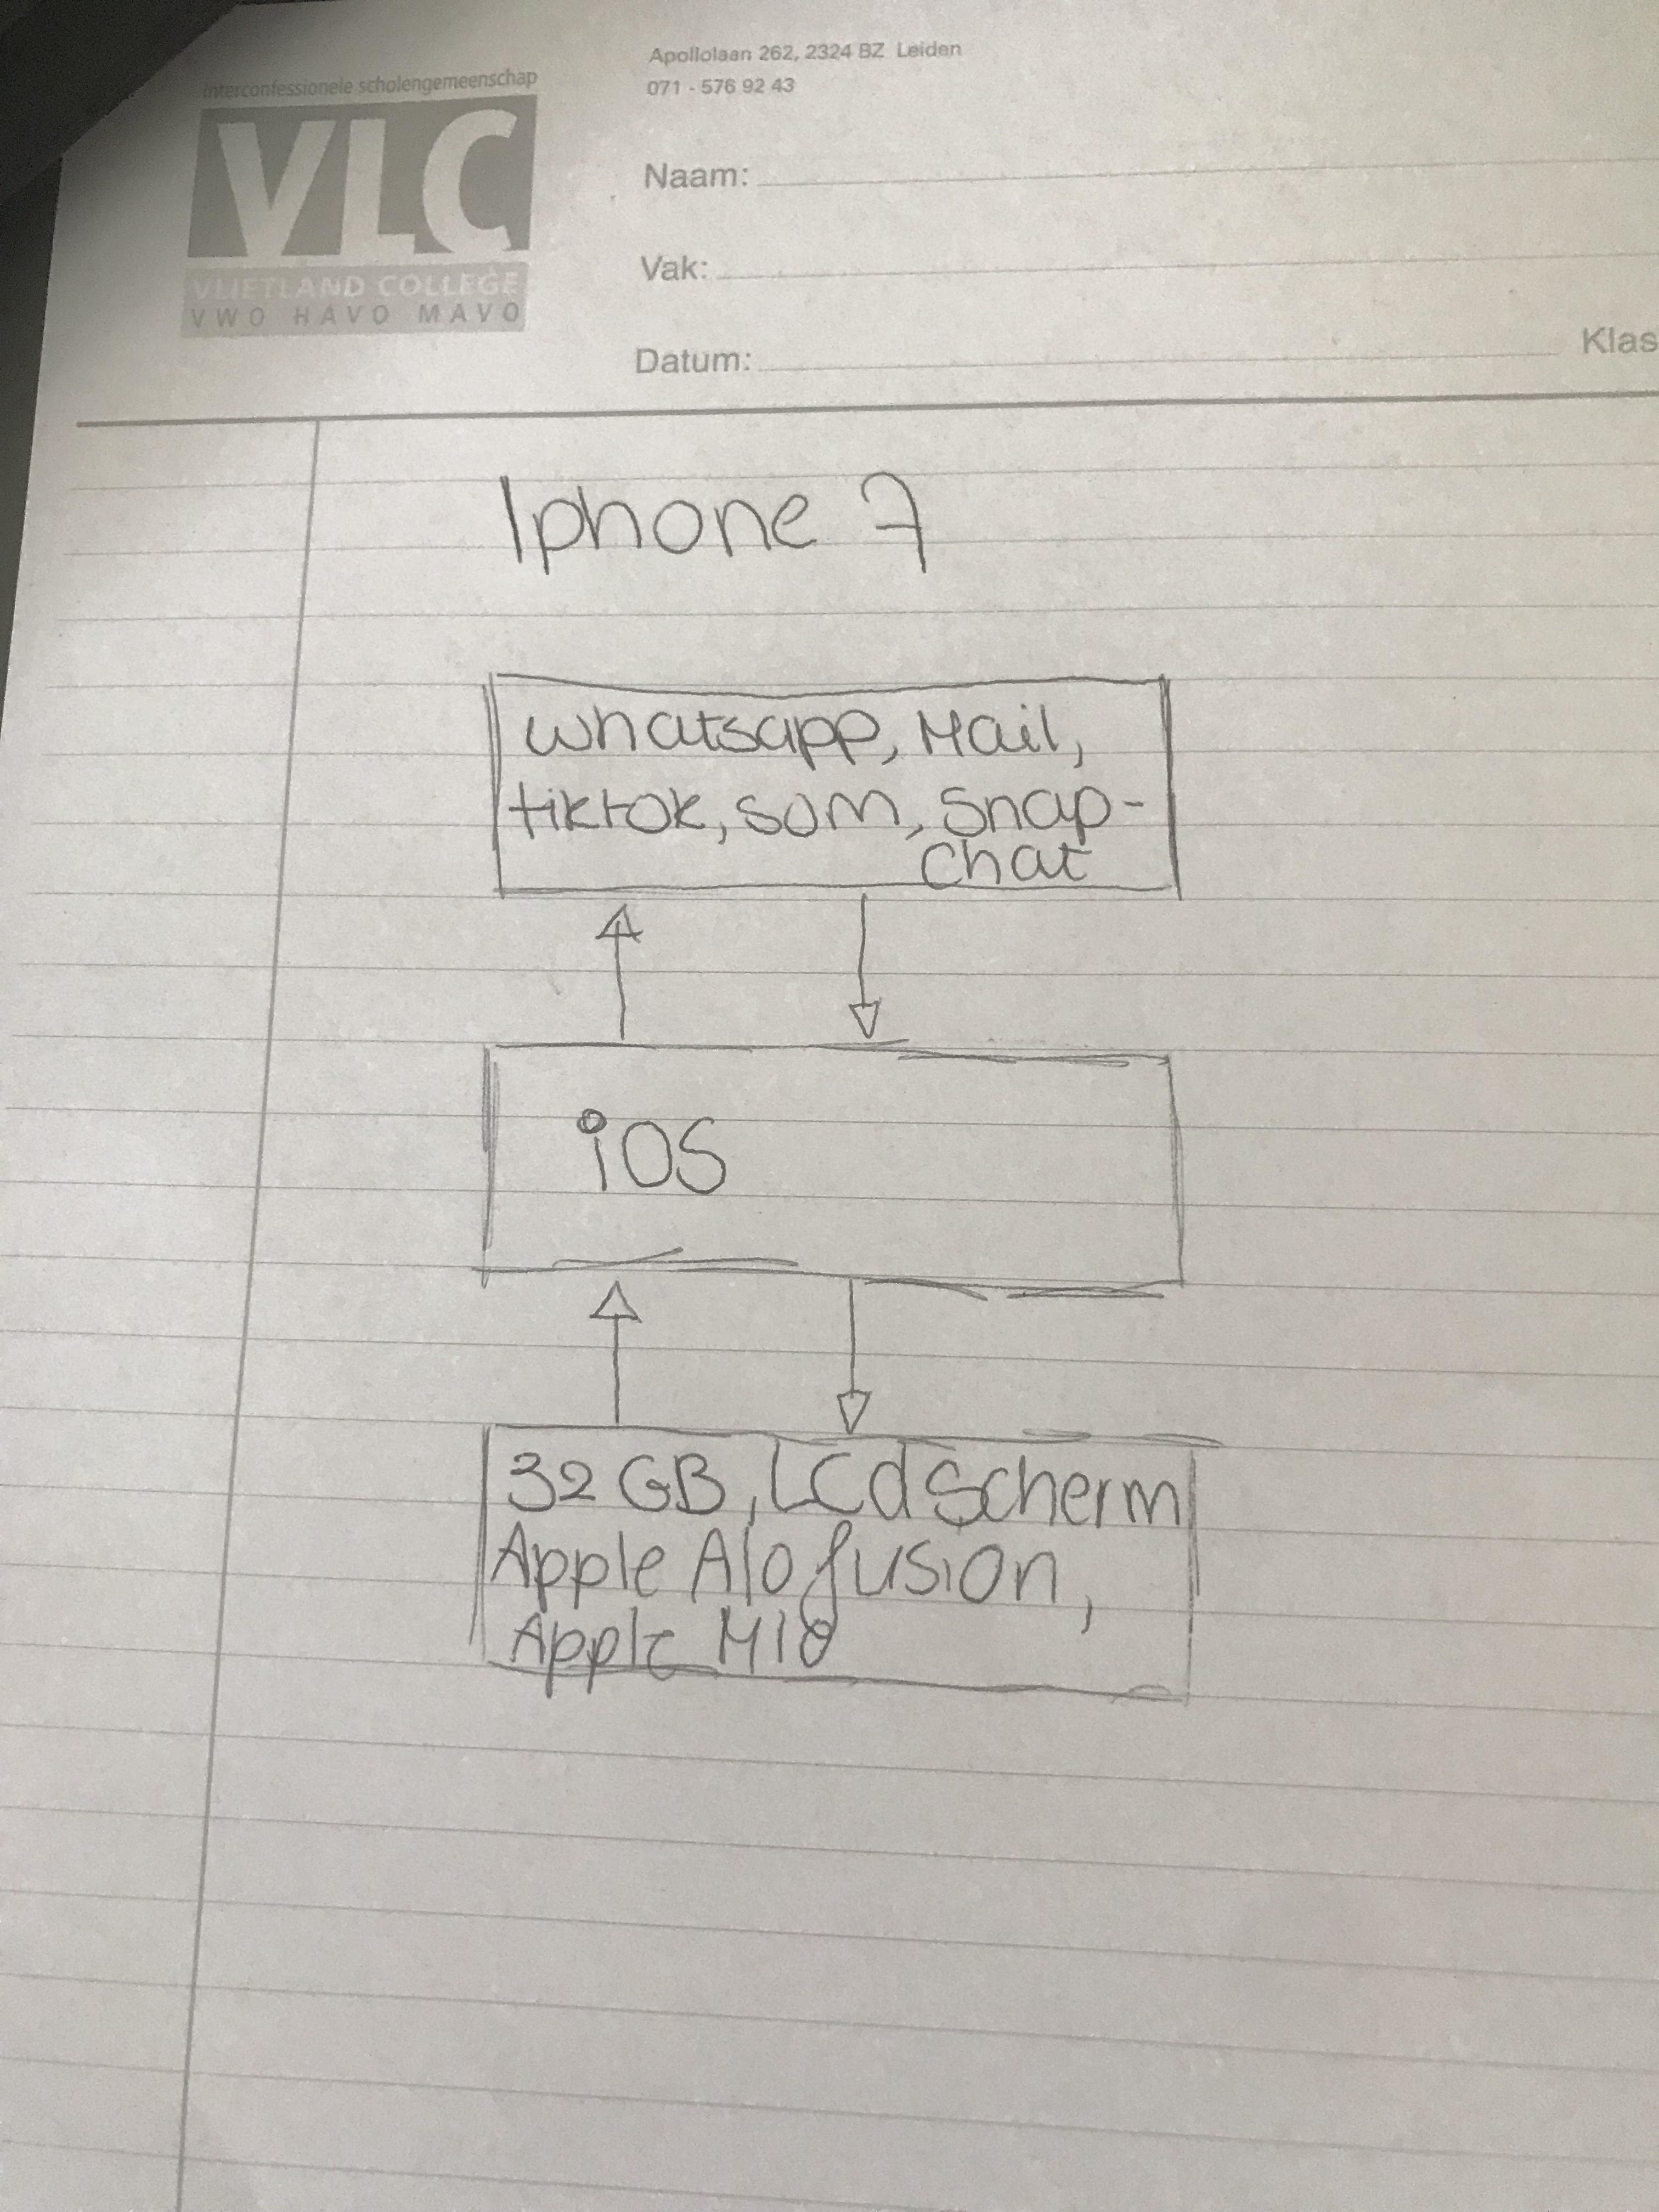 Interconfessionele scholengemeenschap
VLC
VLIETLAND COLLEGE
VWO HAVO MAVO
Apollolaan 262, 2324 BZ Leiden
071 - 576 92 43
Naam:
Vak:
Datum:
Klas
Iphone 7
whatsapp, Mail,
tiktok, som, Snap-
chat
iOS
32 GB, LCd scherm
Apple A10 fusion,
Apple M10